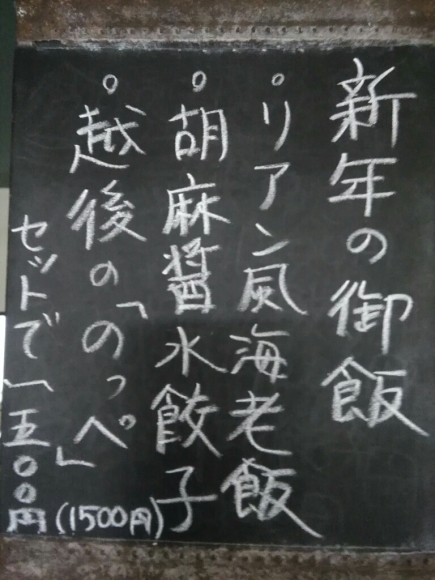 新年の御飯
○リアン風海老飯
○胡麻醤水餃子
○越後の「のっぺ」
セットで一五〇〇円(1500円)